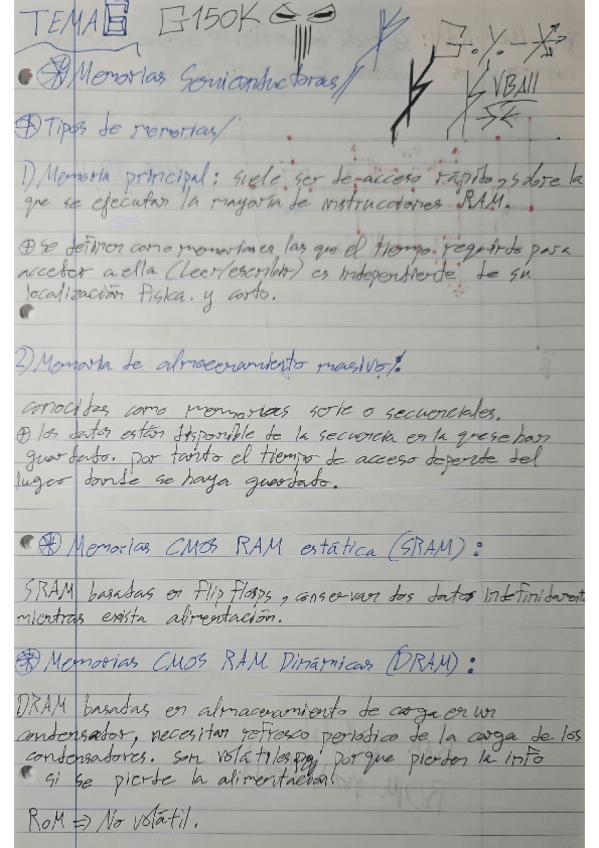 TEMA 8 G150K
VBAll
Memorias Semiconductoras//
Tipos de memorias/
1) Memoria principal: suele ser de acceso rápido, sobre la
que se ejecutan la mayoría de instrucciones. RAM.
se definen como memorias en las que el tiempo requerido para
acceder a ella (leer/escribir) es independiente de su
localización física. y corto.
2) Memoria de almacenamiento masivo:
conocidas como memorias serie o secuenciales.
los datos están disponible de la secuencia en la que se han
guardado. por tanto el tiempo de acceso depende del
lugar donde se haya guardado.
Memorias CMOS RAM estática (SRAM):
SRAM basadas en flip flops, conservan dos datos indefinidamente
mientras exista alimentación.
Memorias CMOS RAM Dinámicas (DRAM):
DRAM basadas en almacenamiento de carga en un
condensador, necesitan refresco periódico de la carga de los
condensadores. son volátiles porque pierden la info
si se pierde la alimentación!
ROM => No volátil.